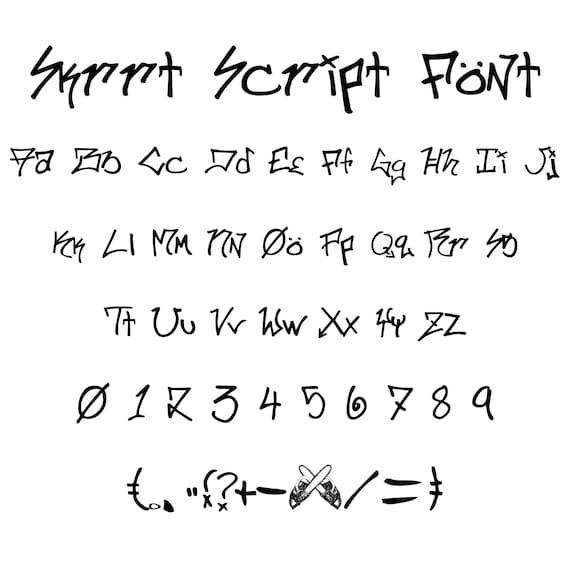 Skrrt Script Fönt
Aa Bb Cc Dd Ee Ff Gg Hh Ii Jj
Kk Ll Mm Nn Øö Pp Qq Rr Ss
Tt Uu Vv Ww Xx Yy Zz
Ø 1 2 3 4 5 6 7 8 9
{ . , " ( ? + - / = }